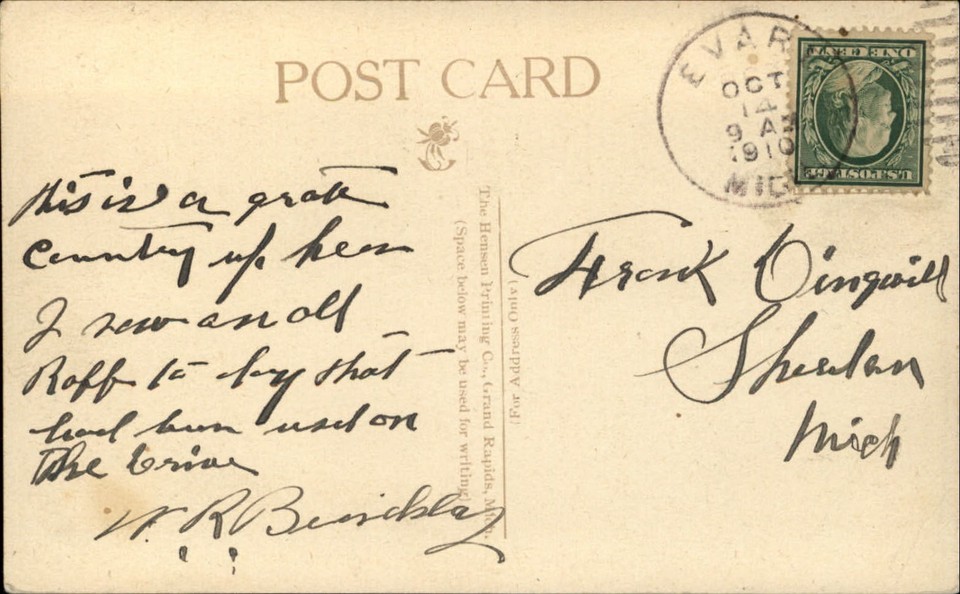 POST CARD
EVAR
OCT
14
9 A
1910
MIC
ONE CENT
U.S.POSTAGE
this is a grate
country up heer
I saw an old
Raff to day that
had bin used on
the Drive
W. R.
The Hensen Printing Co., Grand Rapids, Mich.
(Space below may be used for writing)
(For Address Only)
Frank Dingwill
Sheridan
Mich